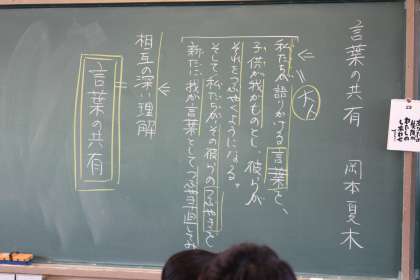 言葉の共有　岡本夏木
大人
私たちが語りかける言葉と、
子供が我がものとし、彼らが
それをつぶやくようになる。
そして私たちが、その彼らのつぶやきを
新たに我が言葉としてつぶやき返してみ
相互の深い理解
言葉の共有